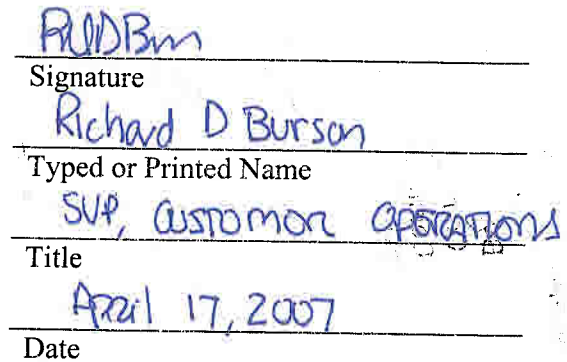 Signature
Richard D Burson
Typed or Printed Name
SVP, Customer Operations
Title
April 17, 2007
Date